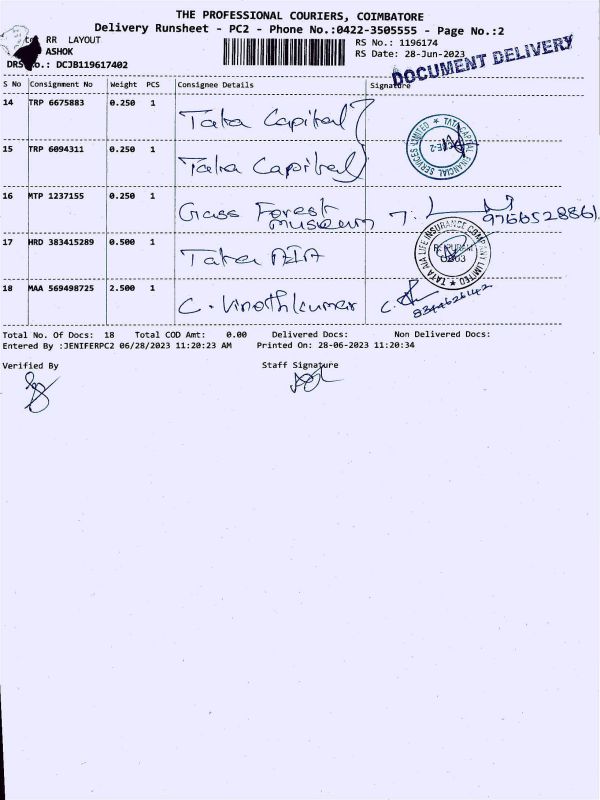 THE PROFESSIONAL COURIERS, COIMBATORE
Delivery Runsheet - PC2 - Phone No.:0422-3505555 - Page No.:2
RR LAYOUT
RS No.: 1196174
ASHOK
RS Date: 28-Jun-2023
DOCUMENT DELIVERY
DRS No.: DCJB119617402
S No Consignment No Weight PCS Consignee Details Signature
14 TRP 6675883 0.250 1 Tata Capital
TATA CAPITAL FINANCIAL SERVICES LIMITED
15 TRP 6094311 0.250 1 Tata Capital
16 MTP 1237155 0.250 1 Gass Forest
museum
17 HRD 383415289 0.500 1 Tata AIA
TATA AIA LIFE INSURANCE COMPANY LIMITED
18 MAA 569498725 2.500 1 C. Vinothkumar
8344626142
Total No. Of Docs: 18 Total COD Amt: 0.00 Delivered Docs: Non Delivered Docs:
Entered By :JENIFERPC2 06/28/2023 11:20:23 AM Printed On: 28-06-2023 11:20:34
Verified By Staff Signature